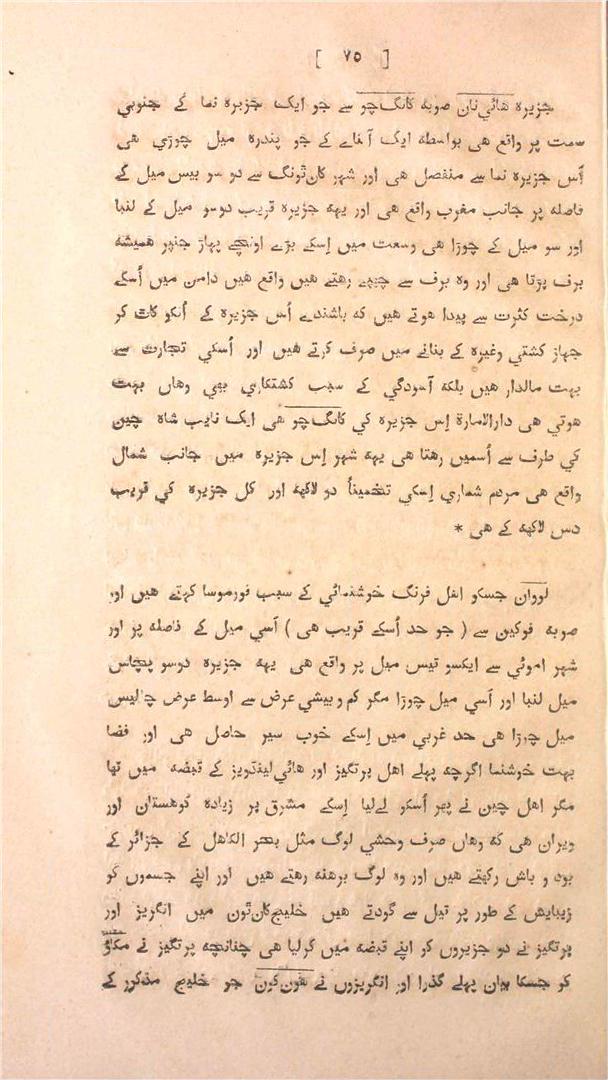 [ ٧٥ ]
جزيره هائي نان صوبه کانگ چو سے جو ايک جزيره نما کے جنوبي
سمت پر واقع هی بواسطه ايک آبنائے کے جو پندره ميل چوڑي هی
اُس جزيره نما سے منفصل هی اور شهر کان ٹونگ سے دو سو بيس ميل کے
فاصله پر جانب مغرب واقع هی اور يهه جزيره قريب دوسو ميل کے لنبا
اور سو ميل کے چوڑا هی وسعت ميں اِسکے بڑے اونچے پهاڑ جنپر هميشه
برف پڑتا هی اور وه برف سے چهپے رهتے هيں واقع هيں دامن ميں اُسکے
درخت کثرت سے پيدا هوتے هيں که باشندے اُس جزيره کے اُنکو کاٹ کر
جهاز کشتي وغيره کے بنانے ميں صرف کرتے هيں اور اُسکي تجارت سے
بهت مالدار هيں بلکه آسودگي کے سبب کشتکاري بهي وهاں بهت
هوتي هی دارالامارة اِس جزيره کي کانگ چو هی ايک نايب شاه چين
کي طرف سے اُسميں رهتا هی يهه شهر اِس جزيره ميں جانب شمال
واقع هی مردم شماري اِسکي تخميناً دو لاکهه اور کل جزيره کي قريب
دس لاکهه کے هی *
لووان جسکو اهل فرنگ خوشنمائي کے سبب فورموسا کهتے هيں اور
صوبه فوکين سے ( جو حد اُسکے قريب هی ) اَسي ميل کے فاصله پر اور
شهر اموئي سے ايکسو تيس ميل پر واقع هی يهه جزيره دوسو پچاس
ميل لنبا اور اَسي ميل چوڑا مگر کم و بيشي عرض سے اوسط عرض چاليس
ميل چوڑا هی حد غربي ميں اِسکے خوب سير حاصل هی اور فضا
بهت خوشنما اگرچه پهلے اهل پرتگيز اور هائي لينڈويز کے قبضه ميں تها
مگر اهل چين نے پهر اُسکو لے ليا اِسکے مشرق پر زياده کوهستان اور
ويران هی که وهاں صرف وحشي لوگ مثل بحر الکاهل کے جزائر کے
بود و باش رکهتے هيں اور وه لوگ برهنه رهتے هيں اور اپنے جسموں کو
زيبايش کے طور پر تيل سے گودتے هيں خليج کان ٹون ميں انگريز اور
پرتگيز نے دو جزيروں کر اپنے قبضه ميں کرليا هی چنانچه پرتگيز نے مکاؤ
کو جسکا بيان پهلے گذرا اور انگريزوں نے هون کون جو خليج مذکور کے